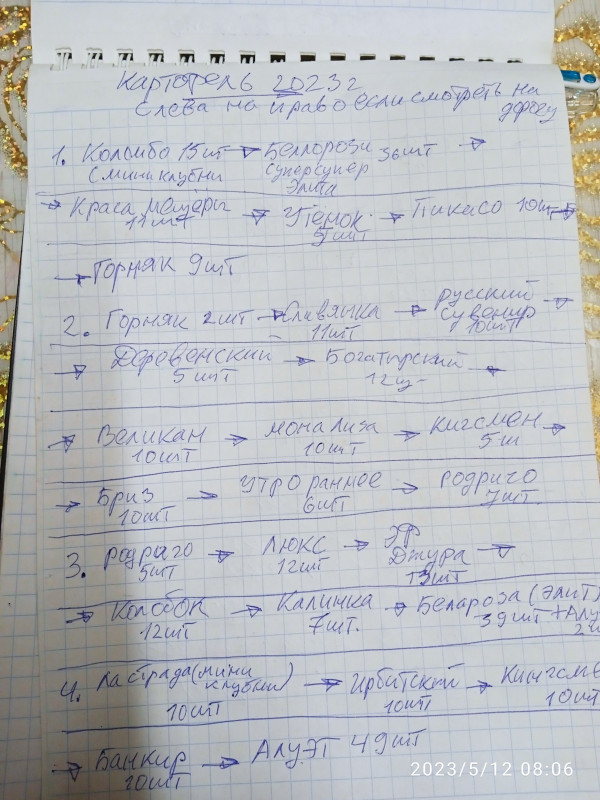 Картофель 2023г
Слева на право если смотреть на
дорогу
1. Коломбо 15шт → Беллорози 36шт →
С мини клубни суперсупер
Элита
→ Краса мещеры → Утенок → Пикасо 10шт →
11шт 9шт
→ Горняк 9шт
2. Горняк 2шт → Славянка → русский →
11шт сувенир
10шт
→ Деревенский → Богатырский →
5шт 12шт
→ Великан → мона лиза → кигсмен →
10шт 10шт 5ш
→ Бриз → Утро раннее → родриго
10шт 6шт 7шт.
3. родраго → люкс → ЭФ
5шт 12шт Джура →
13шт
→ Колобок → Калинка → Белароза (Элит)
12шт 7шт. 39шт + Алу
4. Ластрада (мини → Ирбитский → Кингсме
клубни) 10шт 10шт
10шт
→ Банкир → Алуэт 49шт
10шт
2023/5/12 08:06